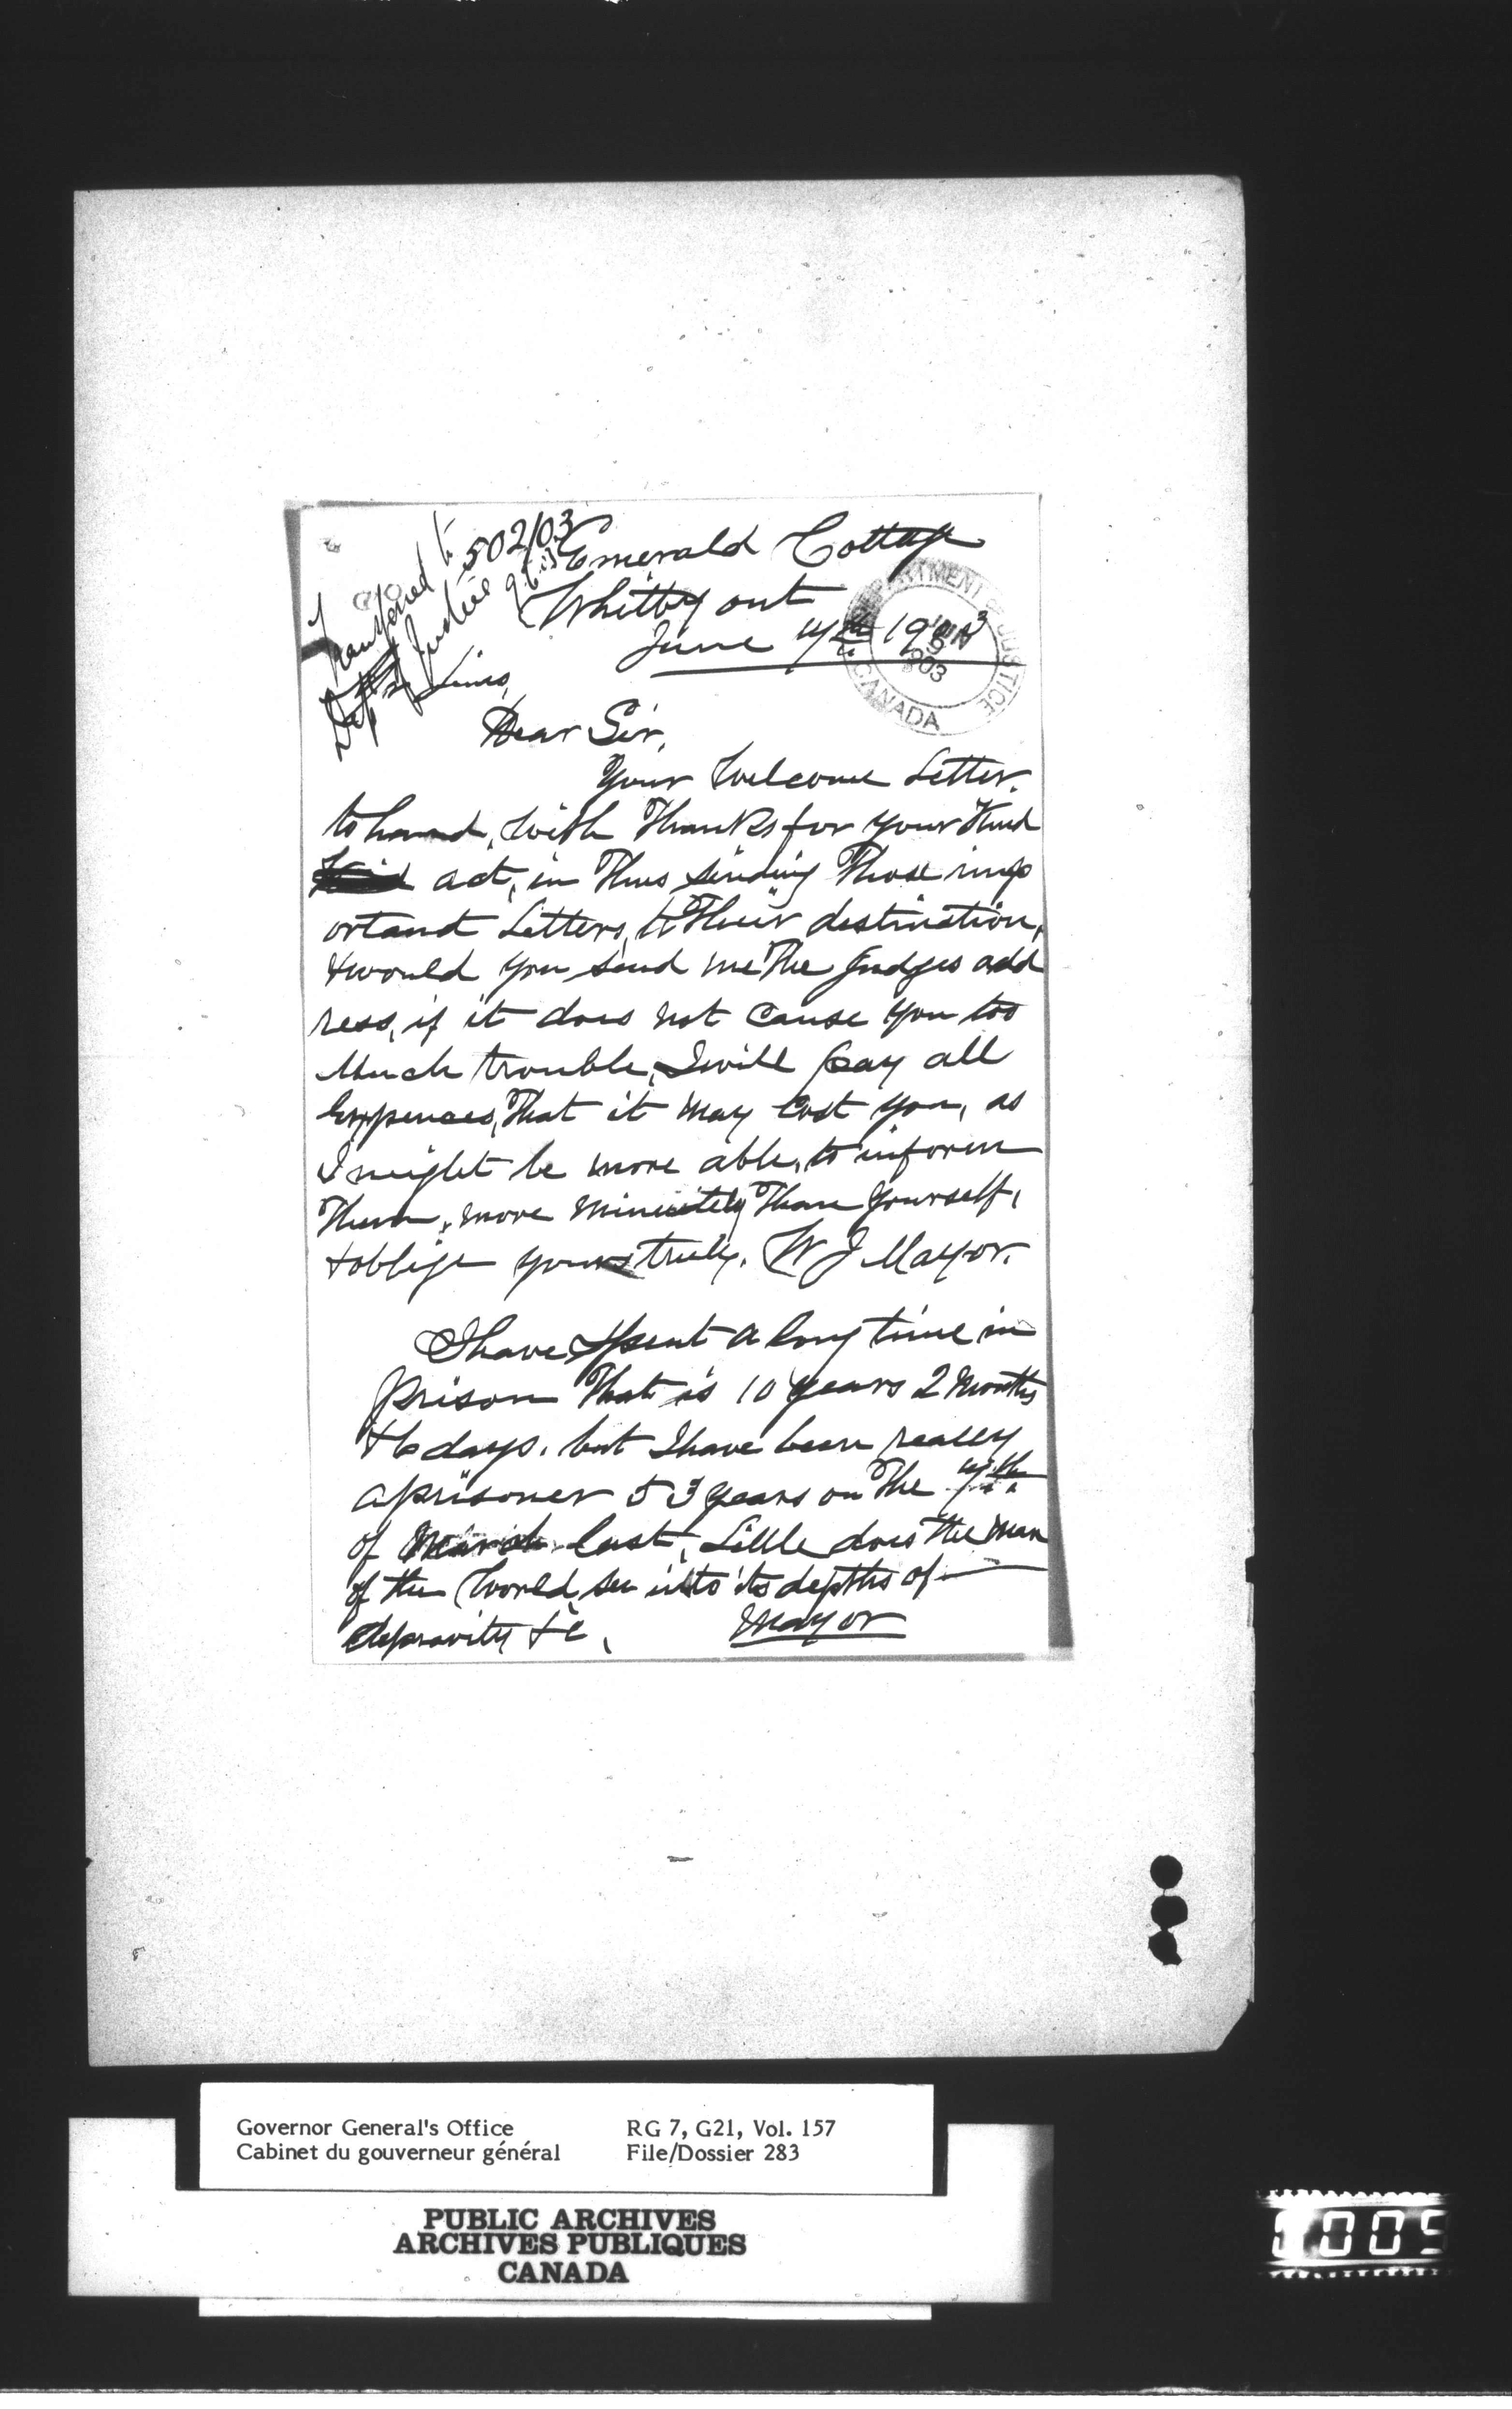 502/03
Transferred to
Dept of Justice 9.6.03
Emerald Cottage
Whitby ont
June 4th 1903
DEPARTMENT OF JUSTICE
JUN 5 1903
CANADA
Dear Sir,
Your Welcome Letter.
to hand, with Thanks for your Kind
act, in Thus sending Those imp
ortand Letters, to Their destination,
& would you send me The Judges add
ress, if it does not Cause you too
Much trouble, I will pay all
Expences, That it may Cost you, as
I might be more able, to inform
Them, more Minutely Than yourself,
& oblige yours truly. W J Mayor.
I have Spent a long time in
prison That is 10 years 2 Months
& 6 days. but I have been really
a prisoner 53 years on The 4th
of March last, Little does the Man
of the World see into its depths of
depravity &c, Mayor
Governor General's Office RG 7, G21, Vol. 157
Cabinet du gouverneur général File/Dossier 283
PUBLIC ARCHIVES
ARCHIVES PUBLIQUES
CANADA
005